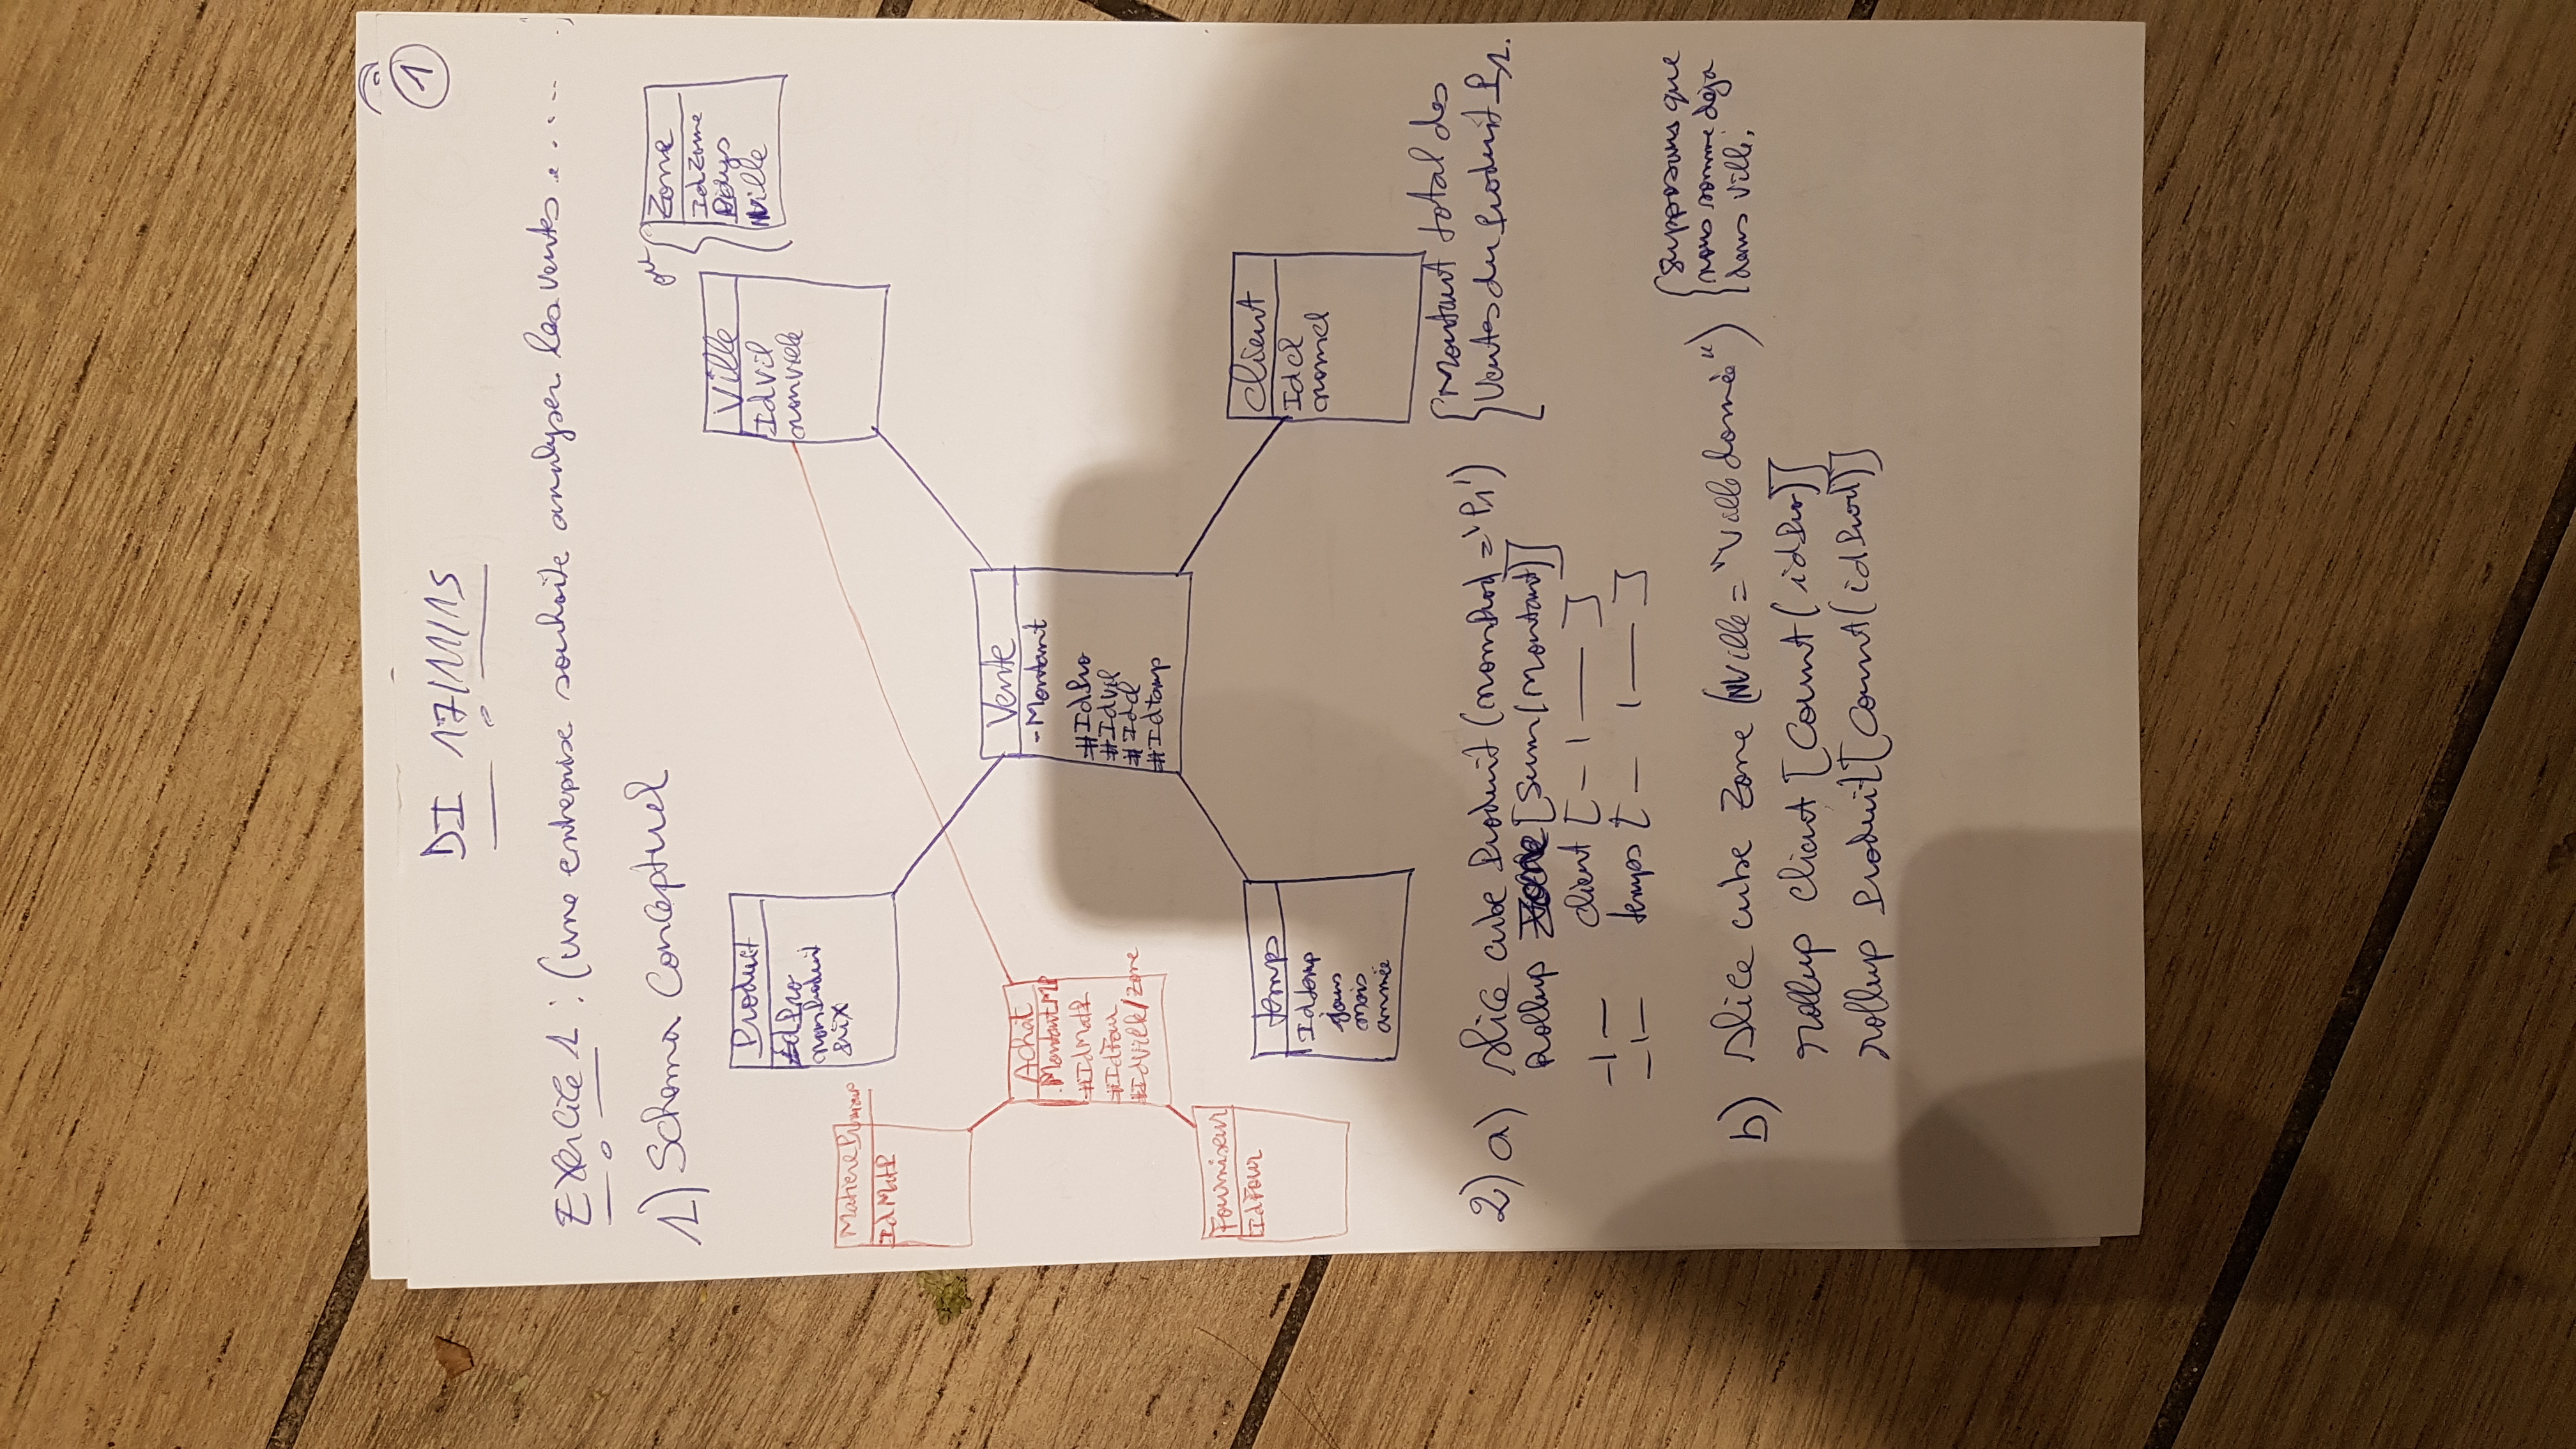 1
DI 17/11/15
Exercice 1 : (une entreprise souhaite analyser les ventes .....)
1) Schema Conceptuel
ou
Zone
IdZone
Pays
NVille
Ville
IdVil
nomville
Produit
IdPro
nomProduit
prix
MatierePremiere
IdMatP
Vente
- Montant
#IdPro
#IdVil
#Idcl
#Idtemp
Achat
.MontantMP
#IdMatP
#IdFour
#IdVille/Zone
Fourniseur
IdFour
temps
Idtemp
jours
mois
année
client
Idcl
nomcl
2) a) slice cube Produit (nomProd = 'P1')
Rollup Zone [Sum(Montant)]
—|— client [— | —]
—|— temps [— | —]
Montant total des
Ventes du Produit P1.
b) slice cube Zone (NVille = "Ville donnée")
rollup client [Count(idPro)]
rollup Produit [Count(idProd)]
supposons que
nous somme deja
dans ville;